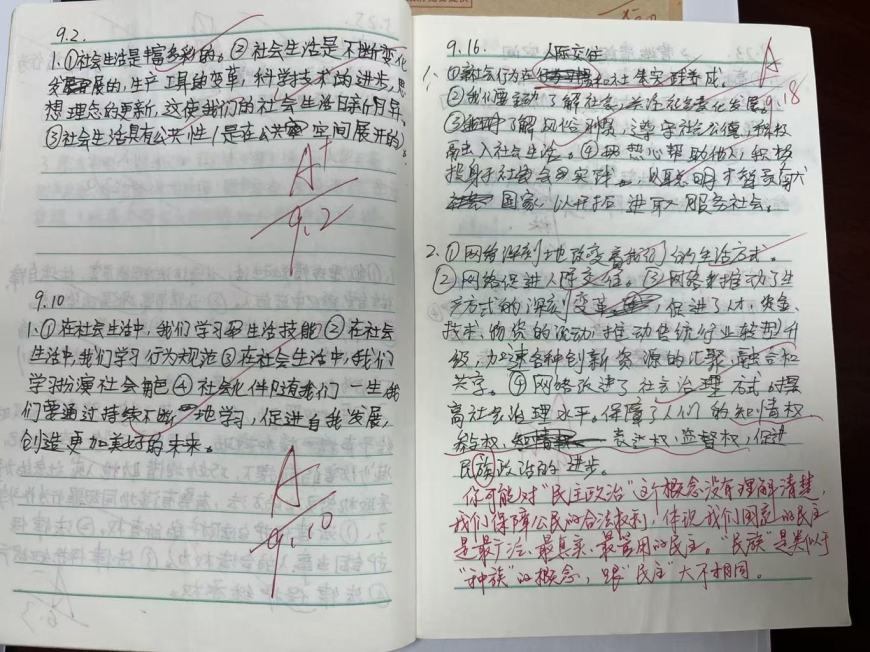 9.2.
1.①社会生活是丰富多彩的。②社会生活是不断变化
发展的,生产工具的变革,科学技术的进步,思
想理念的更新,这使我们的社会生活日新月异。
③社会生活具有公共性(是在公共空间展开的)。
A+
9.2
9.10
1.①在社会生活中,我们学习生活技能②在社会
生活中,我们学习行为规范③在社会生活中,我们
学习扮演社会角色④社会化伴随我们一生,我
们要通过持续不断地学习,促进自我发展,
创造更加美好的未来。
A
9.10
9.16. 人际交往
1.①亲社会行为在人际交往和社会实践中养成。
A
②我们要主动了解社会,关注社会变化发展。
9.18
③了解风俗习惯,遵守社会公德,积极
融入社会生活。④热心帮助他人,积极
投身于社会实践,以聪明才智贡献
国家,以开拓进取服务社会。
2.①网络深刻地改变着我们的生活方式。
②网络促进人际交往。③网络推动了生
产方式的深刻变革,促进了人才、资金、
技术、物资的流动,推动传统行业转型升
级,加速各种创新资源的汇聚、融合和
共享。④网络改进了社会治理方式,提
高社会治理水平。保障了人们的知情权
参与权、表达权、监督权,促进
民族政治的进步。
你可能对"民主政治"这个概念没有理解清楚,
我们保障公民的合法权利,体现我们国家的民主
是最广泛、最真实、最管用的民主。"民族"是类似于
"种族"的概念,跟"民主"大不相同。